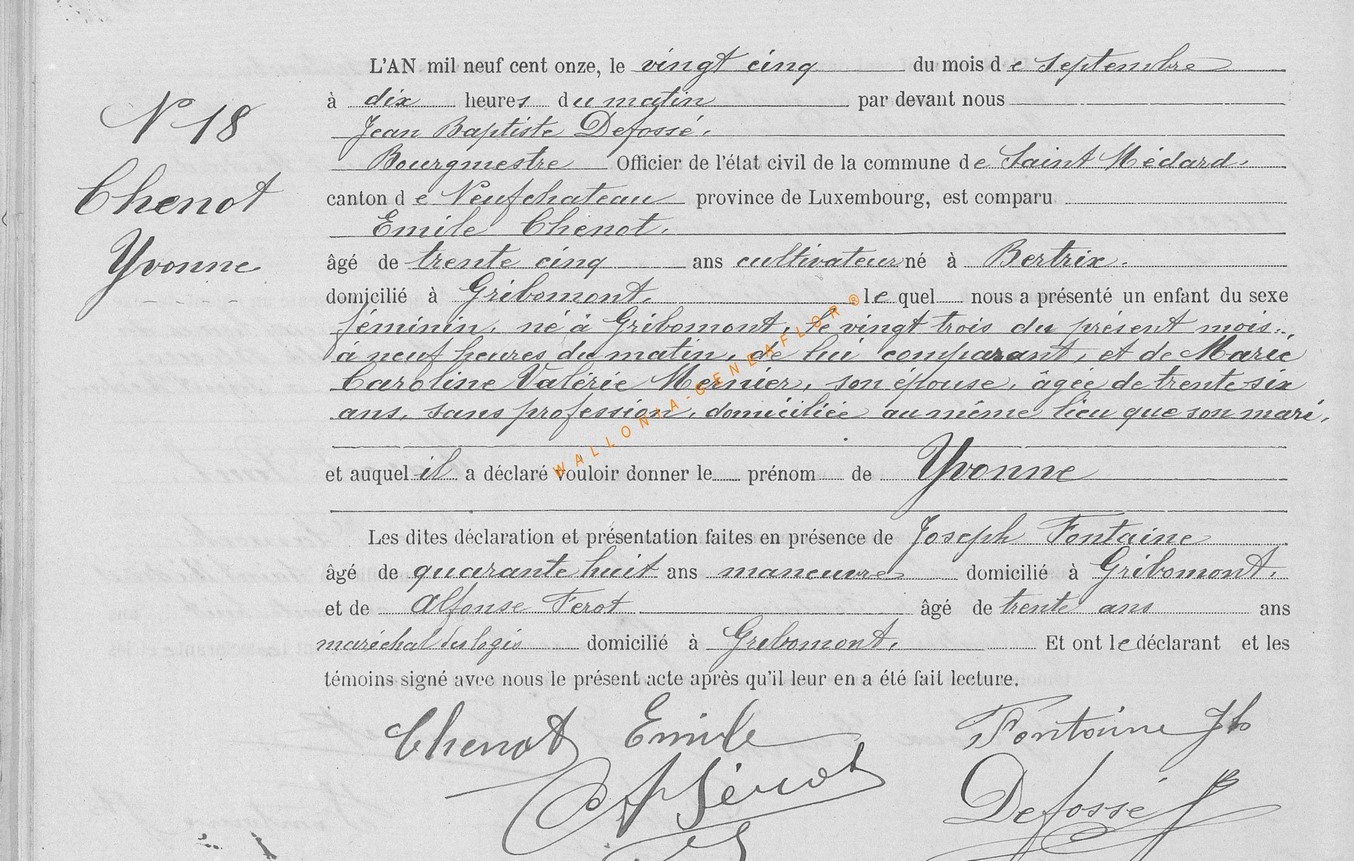 L'AN mil neuf cent onze, le vingt cinq du mois de Septembre
à dix heures du matin par devant nous
N° 18
Jean Baptiste Defossé.
Bourgmestre Officier de l'état civil de la commune de Saint Médard.
Chenot
canton de Neufchateau province de Luxembourg, est comparu
Emile Chenot.
Yvonne
âgé de trente cinq ans cultivateur né à Bertrix.
domicilié à Gribomont. lequel nous a présenté un enfant du sexe
féminin, né à Gribomont, le vingt trois du présent mois.
à neuf heures du matin, de lui comparant, et de Marie
Caroline Valérie Mernier, son épouse, âgée de trente six
ans, sans profession, domiciliée au même lieu que son mari.
WALLONIA-GENEAFLOR®
et auquel il a déclaré vouloir donner le prénom de Yvonne
Les dites déclaration et présentation faites en présence de Joseph Fontaine
âgé de quarante huit ans manœuvre domicilié à Gribomont.
et de Alfonse Ferot âgé de trente ans ans
maréchal des logis domicilié à Gribomont. Et ont le déclarant et les
témoins signé avec nous le présent acte après qu'il leur en a été fait lecture.
Chenot Emile Fontaine Jh
Defossé JB